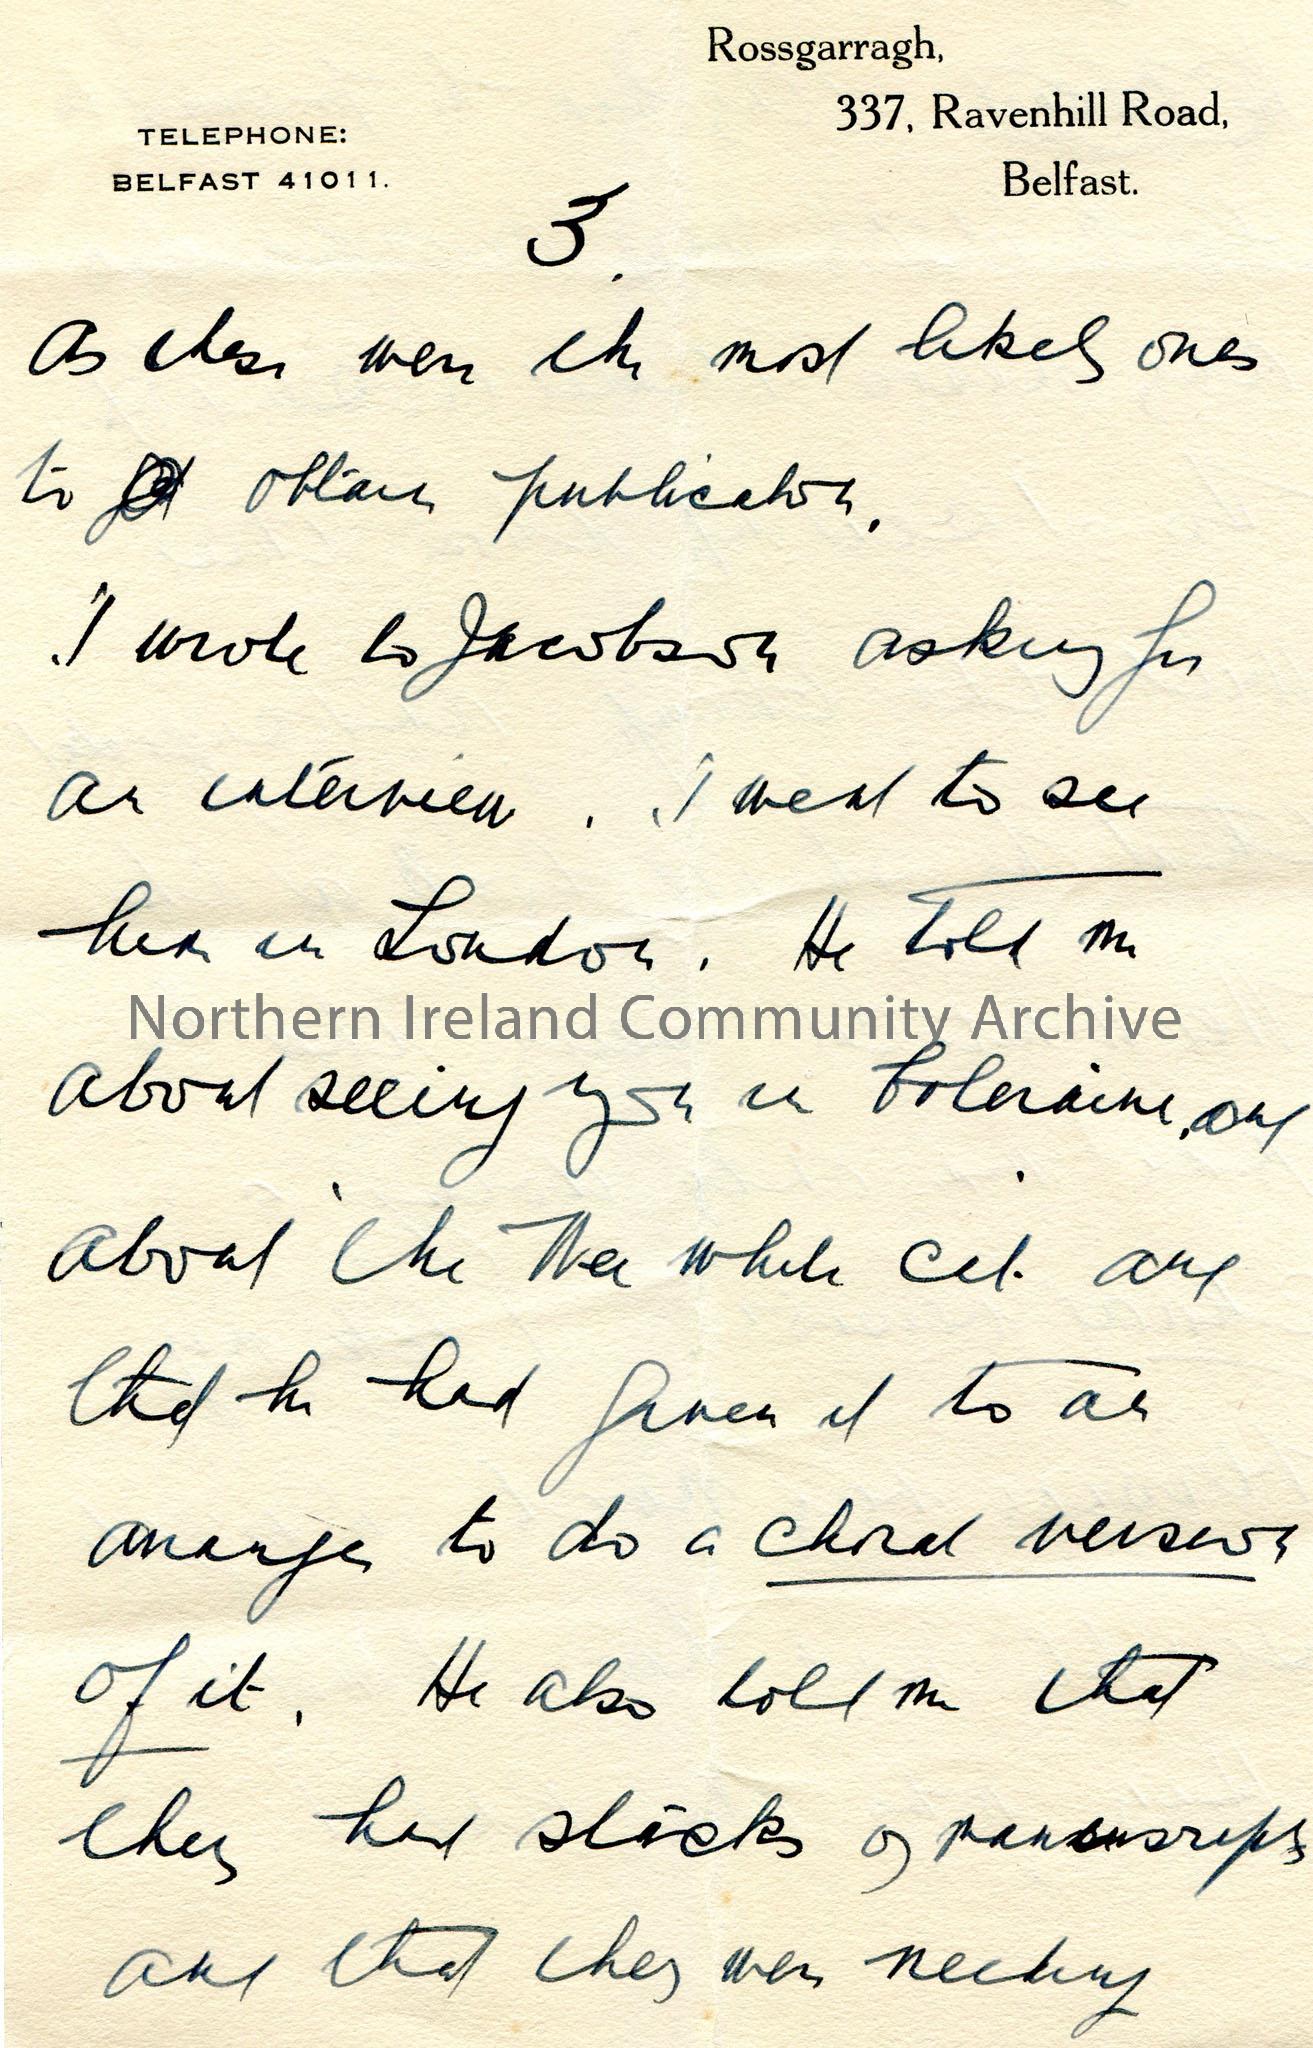 Rossgarragh,
337, Ravenhill Road,
Belfast.
TELEPHONE:
BELFAST 41011.
3.
as these were the most likely ones
to obtain publication.
I wrote to Jacobson asking for
an interview. I went to see
him in London. He told me
Northern Ireland Community Archive
about seeing you in Coleraine, and
about 'The Wee White Cat' and
that he had given it to an
arranger to do a choral version
of it. He also told me that
they had stacks of manuscripts
and that they were meeting